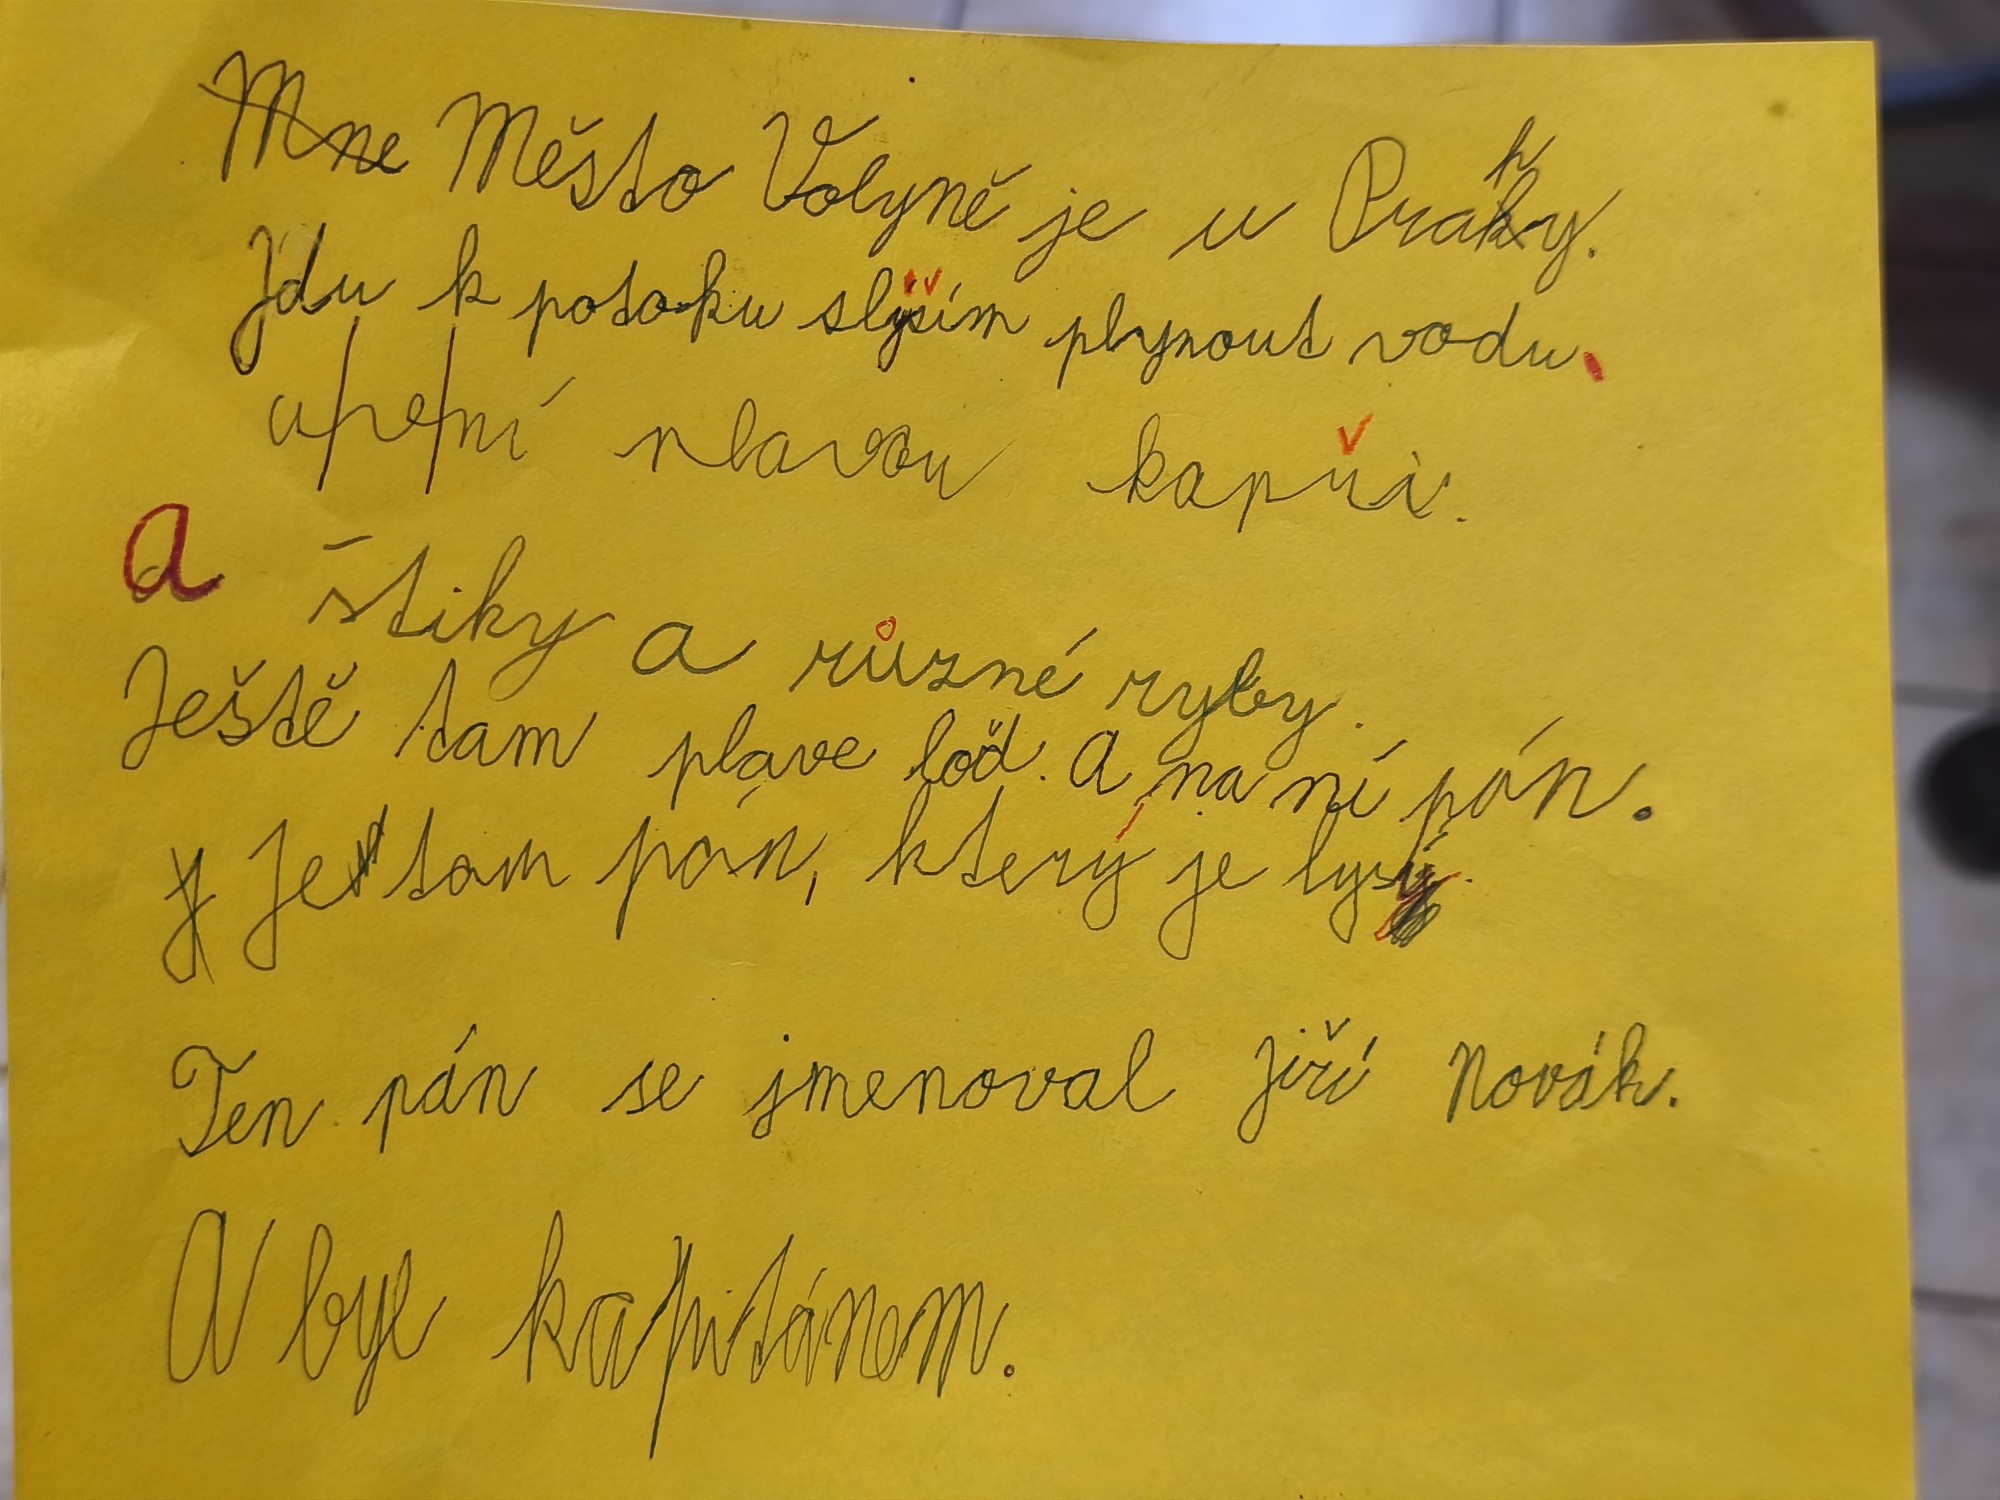 Mne Město Volyně je u Prahy.
Jdu k potoku slyším plynout vodu.
plavou kapři.
A štiky a různé ryby.
Ještě tam plave loď. A na ní pán.
Je tam pán, který je lysý.
Ten pán se jmenoval Jiří Novák.
A byl kapitánem.